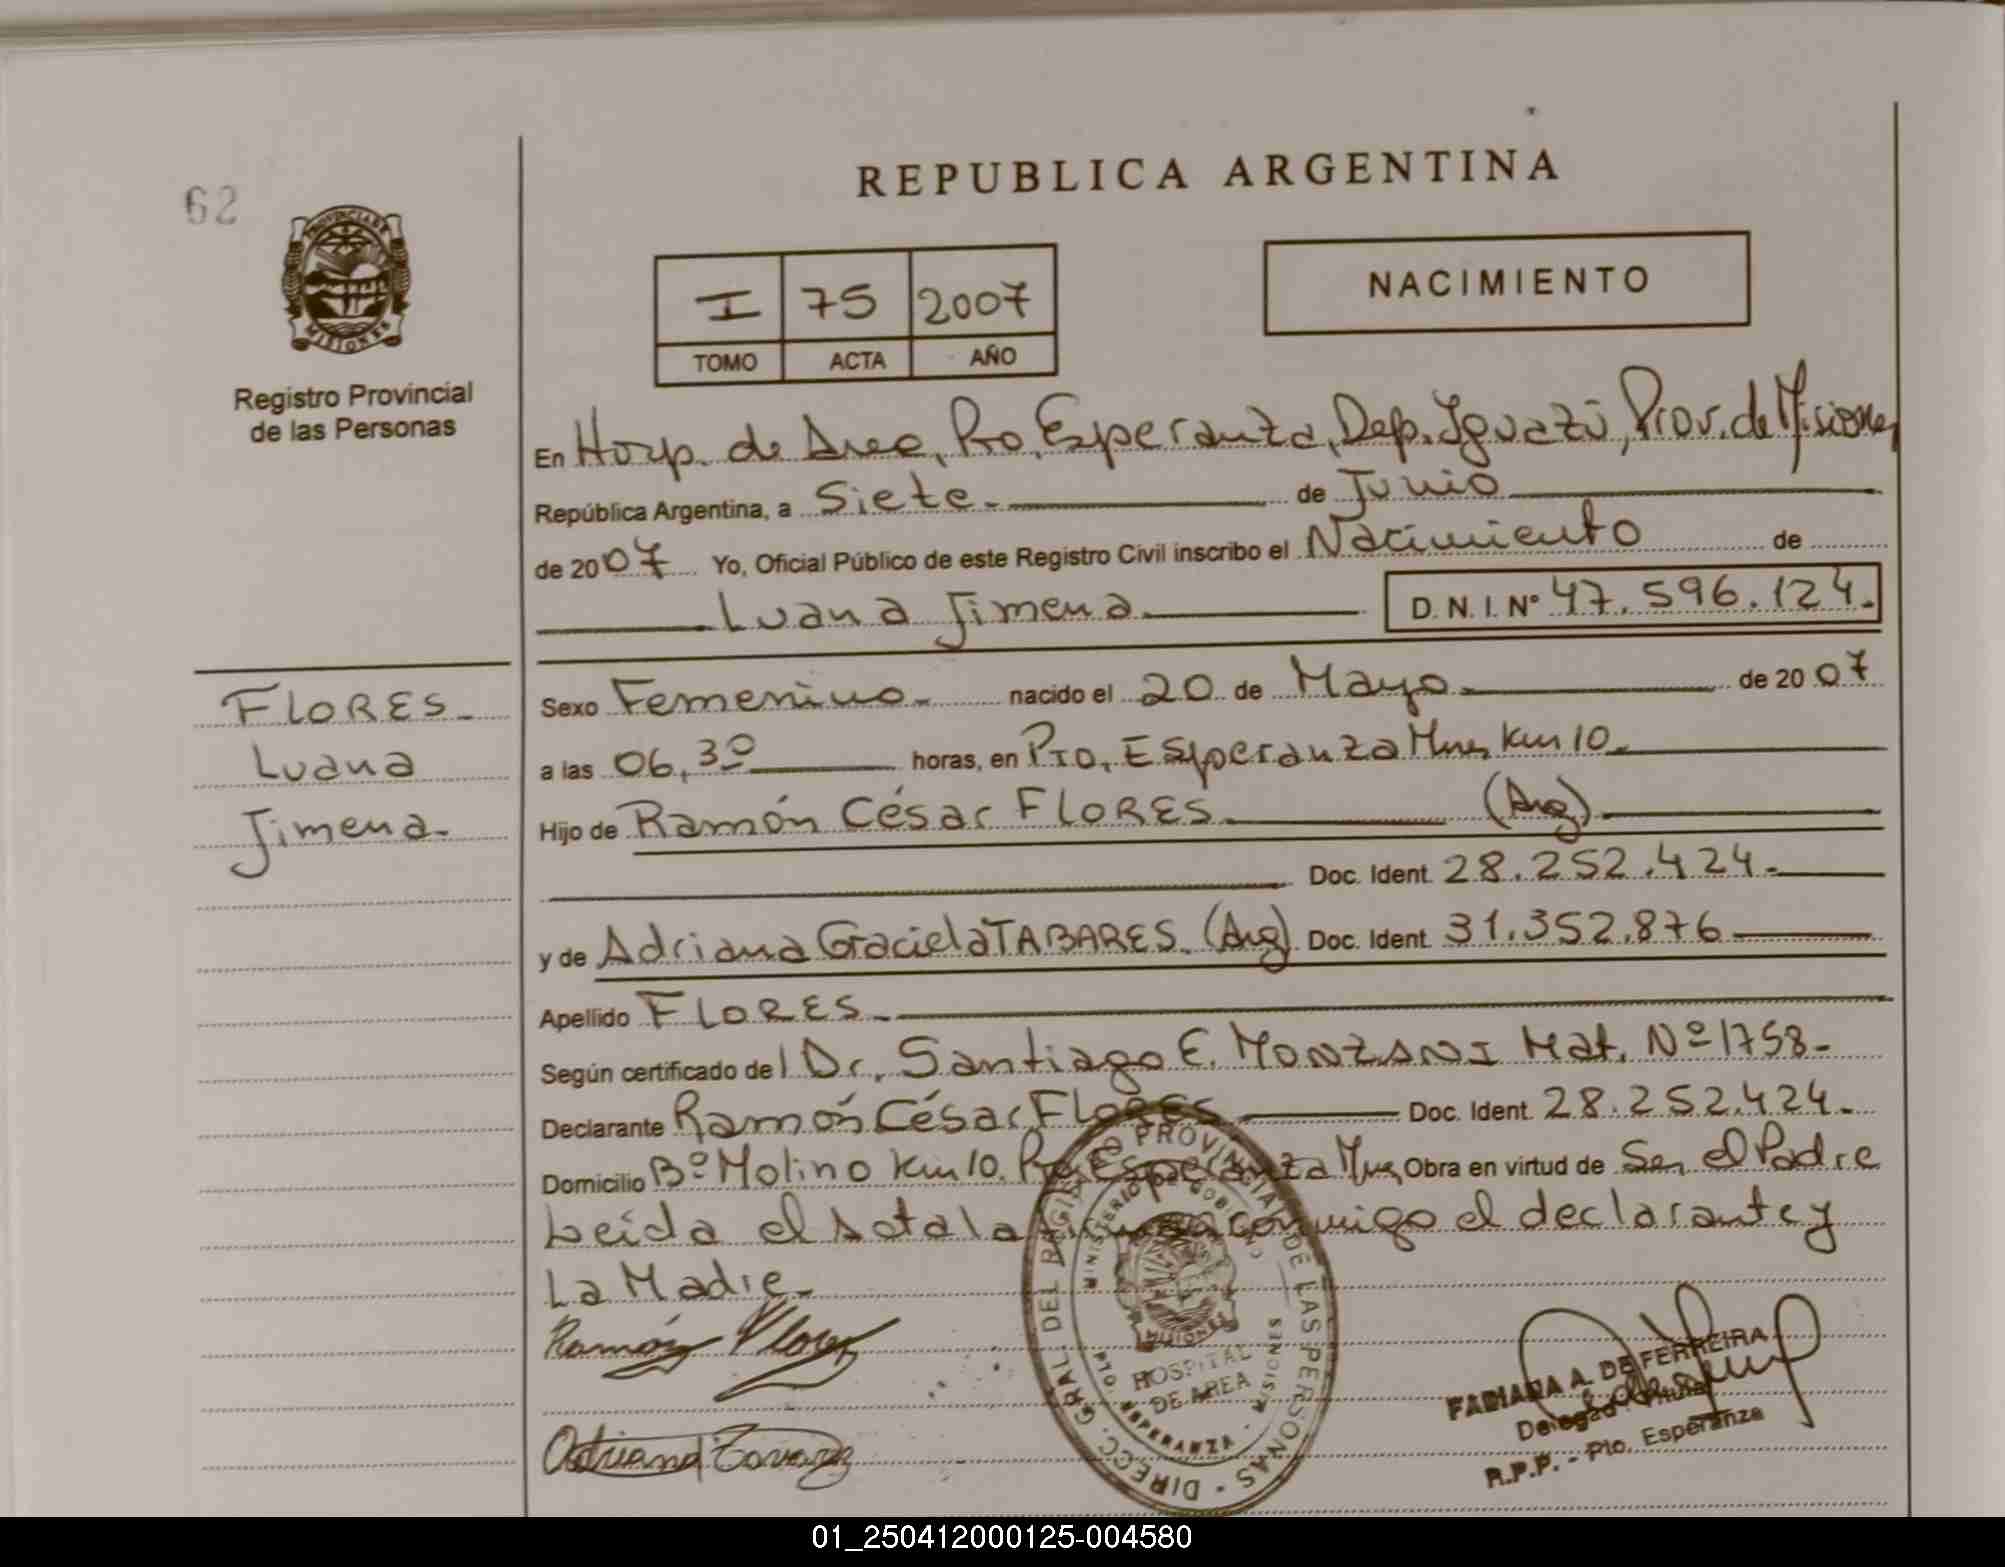 62
PROVINCIA DE
MISIONES
Registro Provincial
de las Personas
REPUBLICA ARGENTINA
I 75 2007
TOMO ACTA AÑO
NACIMIENTO
En Hosp. de Area, Pto. Esperanza, Dep. Iguazú, Prov. de Misiones
República Argentina, a Siete.- de Junio
de 2007 Yo, Oficial Público de este Registro Civil inscribo el Nacimiento de
Luana Jimena D. N. I. Nº 47.596.124.-
FLORES-
Luana
Jimena-
Sexo Femenino.- nacido el 20 de Mayo.- de 2007
a las 06,30 horas, en Pto. Esperanza Mnes Km 10.-
Hijo de Ramón César FLORES.- (Arg)
Doc. Ident. 28.252.424.-
y de Adriana Graciela TABARES. (Arg) Doc. Ident. 31.352.876
Apellido FLORES.-
Según certificado del Dr. Santiago E. MONZANI Mat. Nº 1758-
Declarante Ramón César FLORES Doc. Ident. 28.252.424.-
Domicilio Bº Molino Km 10. Pto Esperanza Mnes Obra en virtud de Ser el Padre
Leida el Acta la conmigo el declarante y
La Madre.-
Ramón Flores
Adriana
DIREC. GRAL. DEL REGISTRO PROVINCIAL DE LAS PERSONAS
MINISTERIO DE GOBIERNO
MISIONES
HOSPITAL
DE AREA
PTO. ESPERANZA - MISIONES
FABIANA A. DE FERREIRA
R.P.P. - Pto. Esperanza
01_250412000125-004580